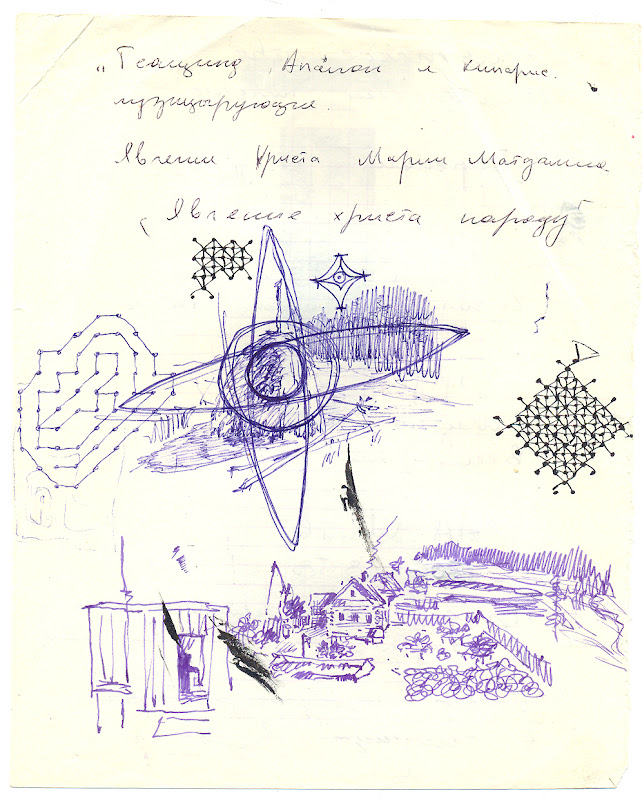 „Геацинд, Апалон и кипарис.
музицырующие.
Явление Христа Марии Магдалина.
„Явление христа народу“